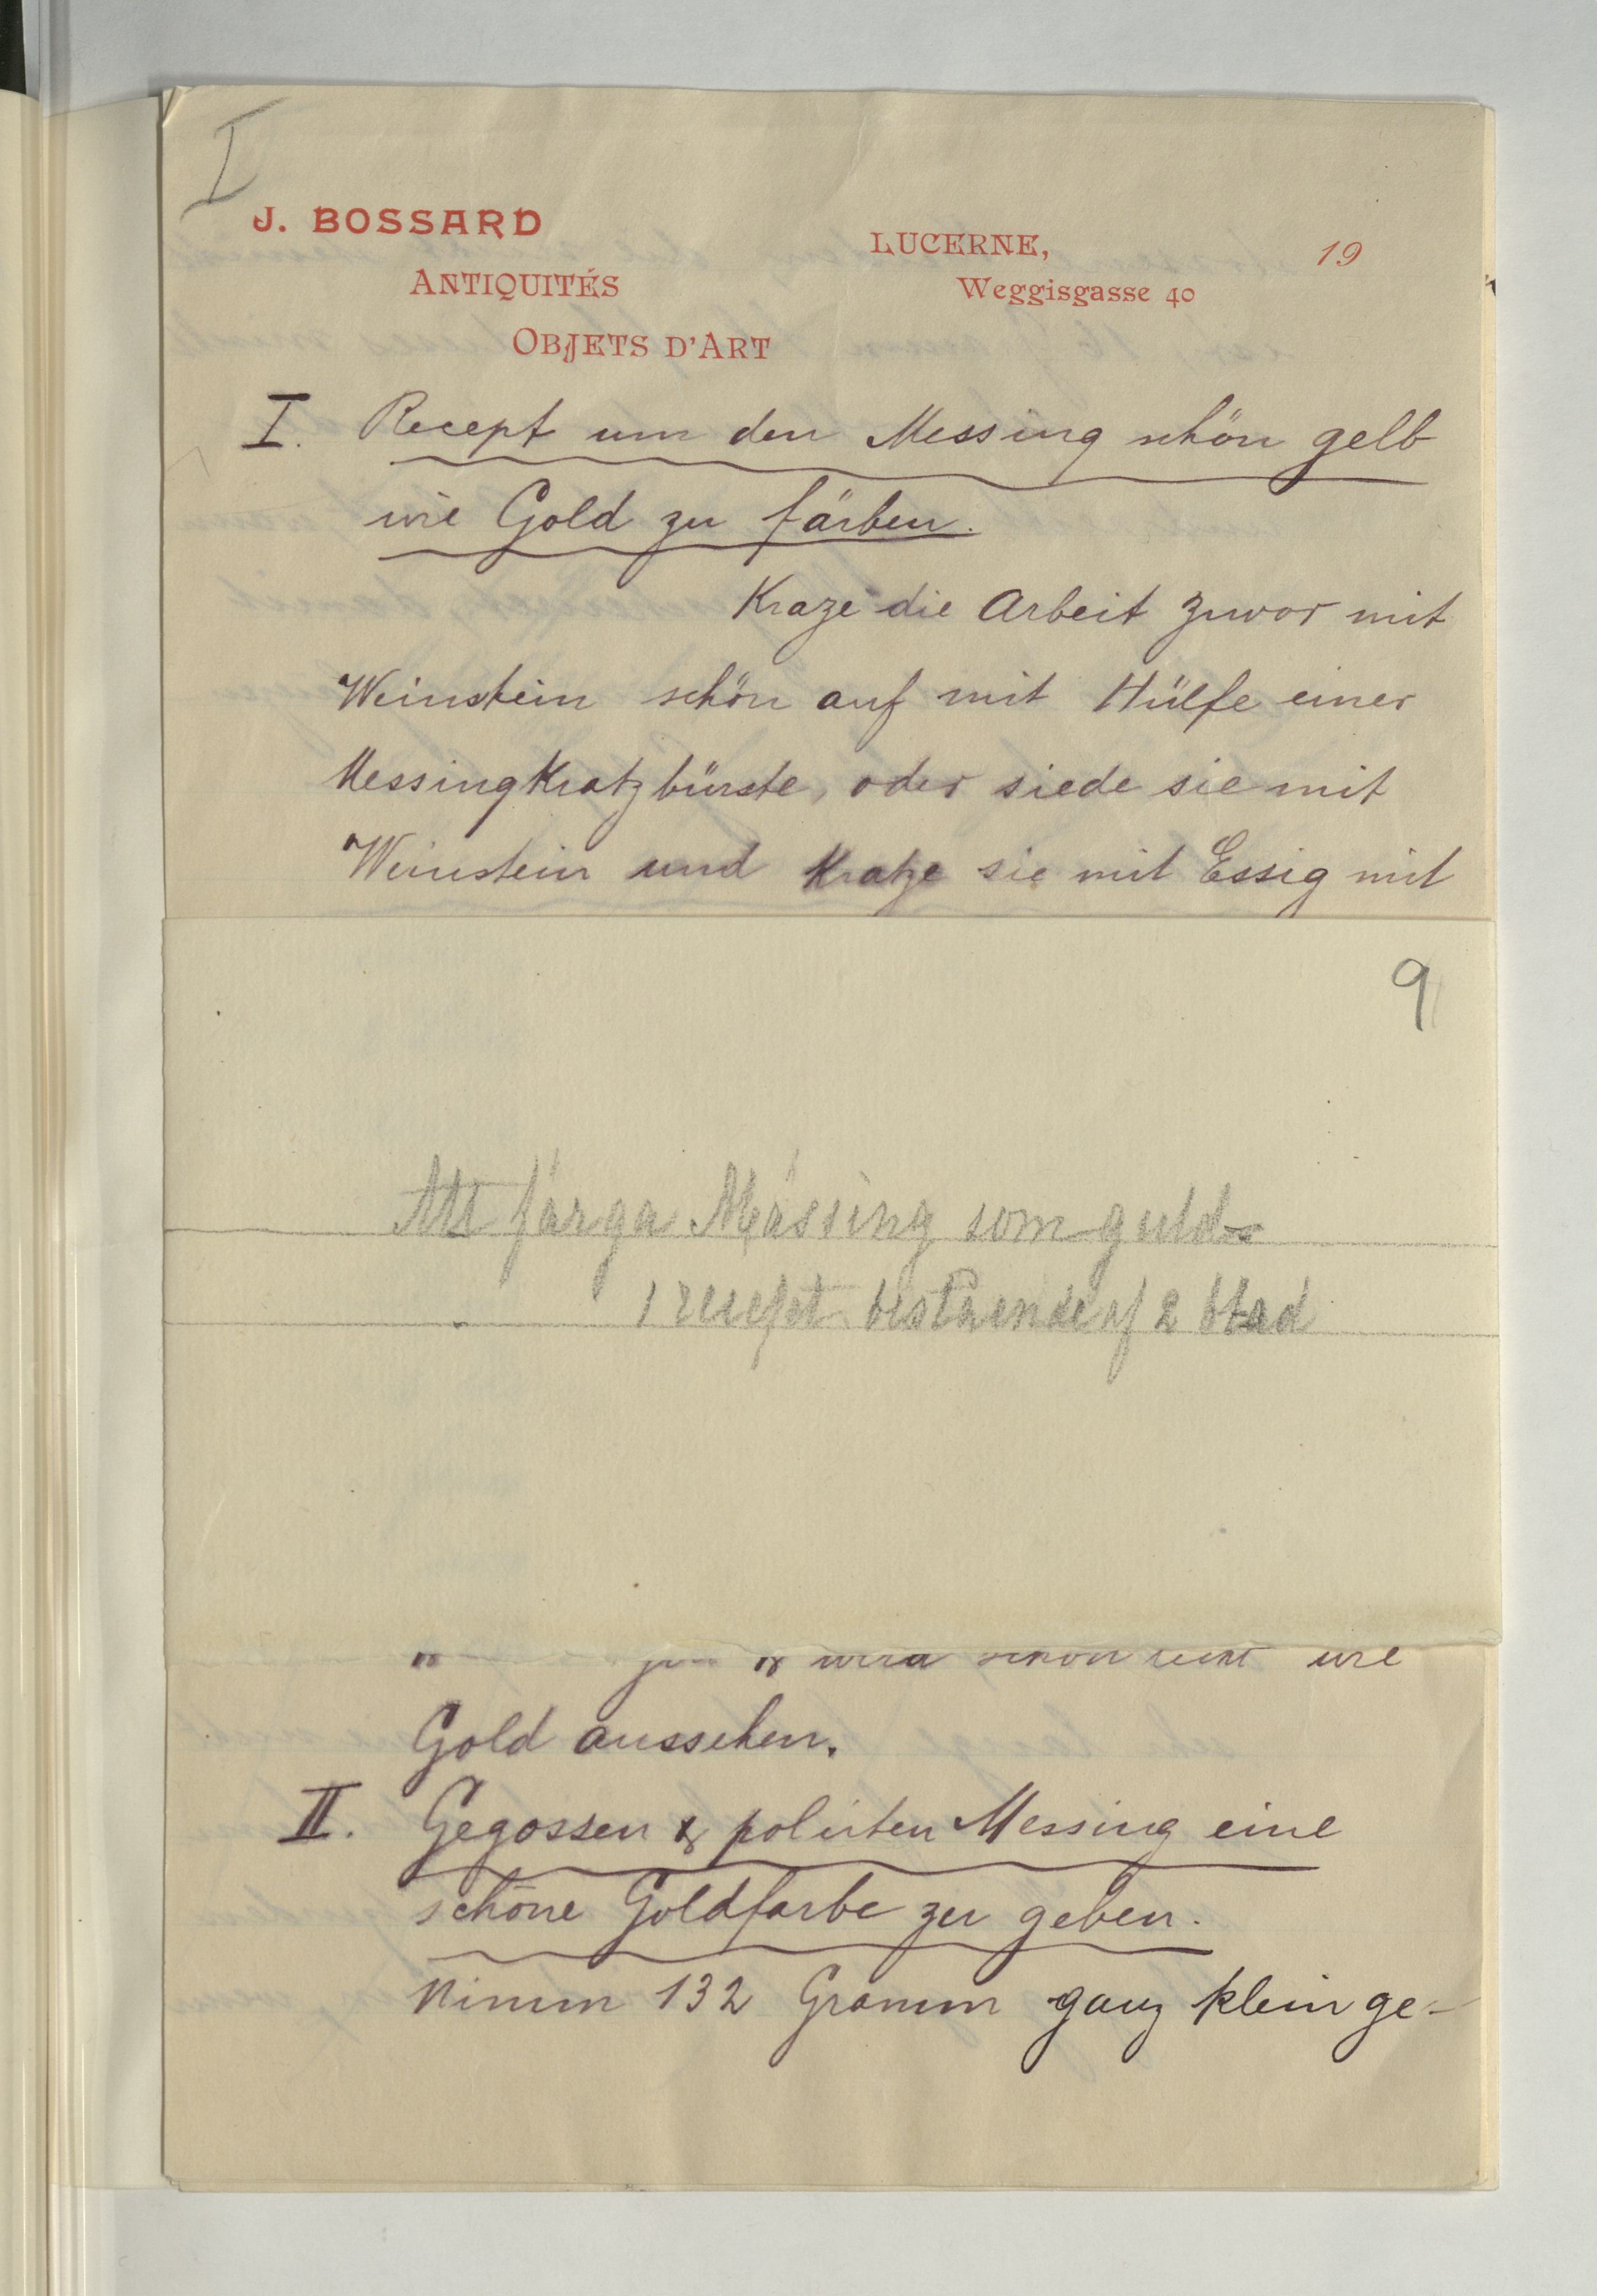 I
J. BOSSARD
ANTIQUITÉS
OBJETS D'ART
LUCERNE,
Weggisgasse 40
19
I. Recept um den Messing schön gelb
wie Gold zu färben.
Kraze die Arbeit zuvor mit
Weinstein schön auf mit Hülfe einer
Messingkratzbürste, oder siede sie mit
Weinstein und kratze sie mit Essig mit
9
Att färga Mässing som guld
1 recept bestående af 2 blad
& wird schon recht wie
Gold aussehen.
II. Gegossen & polirten Messing eine
schöne Goldfarbe zu geben.
Nimm 132 Gramm ganz klein ge-